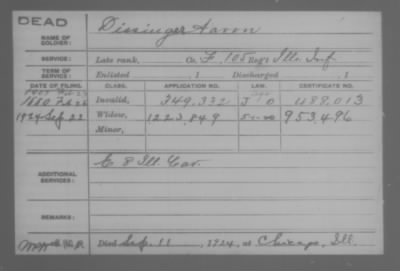 DEAD
NAME OF SOLDIER: Dissinger Aaron
SERVICE: Late rank, Co. F, 105 Reg't Ill. Inf.
TERM OF SERVICE: Enlisted , 1 Discharged , 1
DATE OF FILING. CLASS. APPLICATION NO. LAW. CERTIFICATE NO.
1880 Feb 26 Invalid, 349,332 488,013
1924 Sep. 22 Widow, 1223,849 953,496
Minor,
ADDITIONAL SERVICES: C 8 Ill. Cav.
REMARKS:
Died Sep. 11, 1924, at Chicago, Ill.